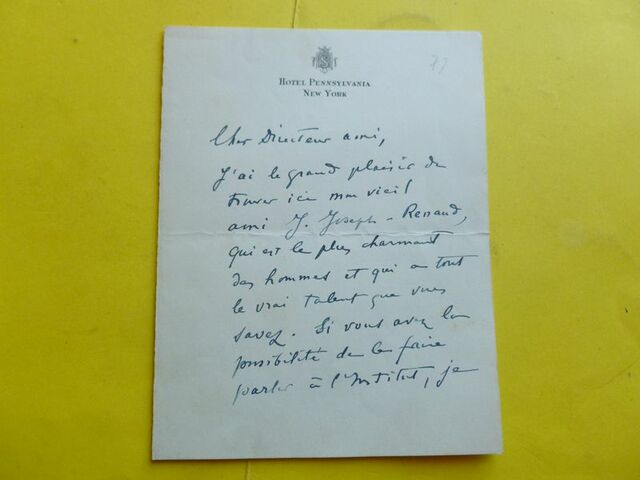 HOTEL PENNSYLVANIA
NEW YORK
77
Cher Directeur ami,
J'ai le grand plaisir de
trouver ici mon vieil
ami J. Joseph-Renaud,
qui est le plus charmant
des hommes et qui a tout
le vrai talent que vous
savez. Si vous avez la
possibilité de le faire
parler à l'Institut, je